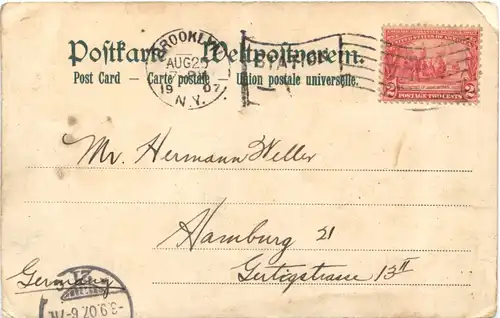 Postkarte — Weltpostverein.
Post Card — Carte postale — Union postale universelle.
BROOKLYN
AUG 25
19 07
N.Y.
STATION
2 POSTAGE TWO CENTS 2
Mr. Hermann Weller
Hamburg 21
Gertigstrasse 13 II
Germany
21
3.9.07. 6-7 N.